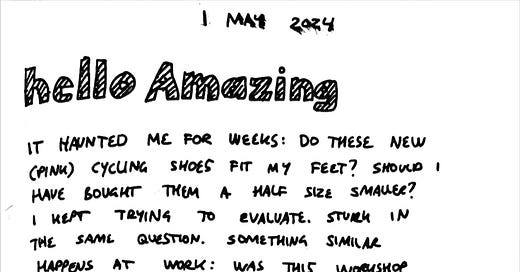 1 MAY 2024
hello Amazing
IT HAUNTED ME FOR WEEKS: DO THESE NEW
(PINK) CYCLING SHOES FIT MY FEET? SHOULD I
HAVE BOUGHT THEM A HALF SIZE SMALLER?
I KEPT TRYING TO EVALUATE. STUCK IN
THE SAME QUESTION. SOMETHING SIMILAR
HAPPENS AT WORK: WAS THIS WORKSHOP